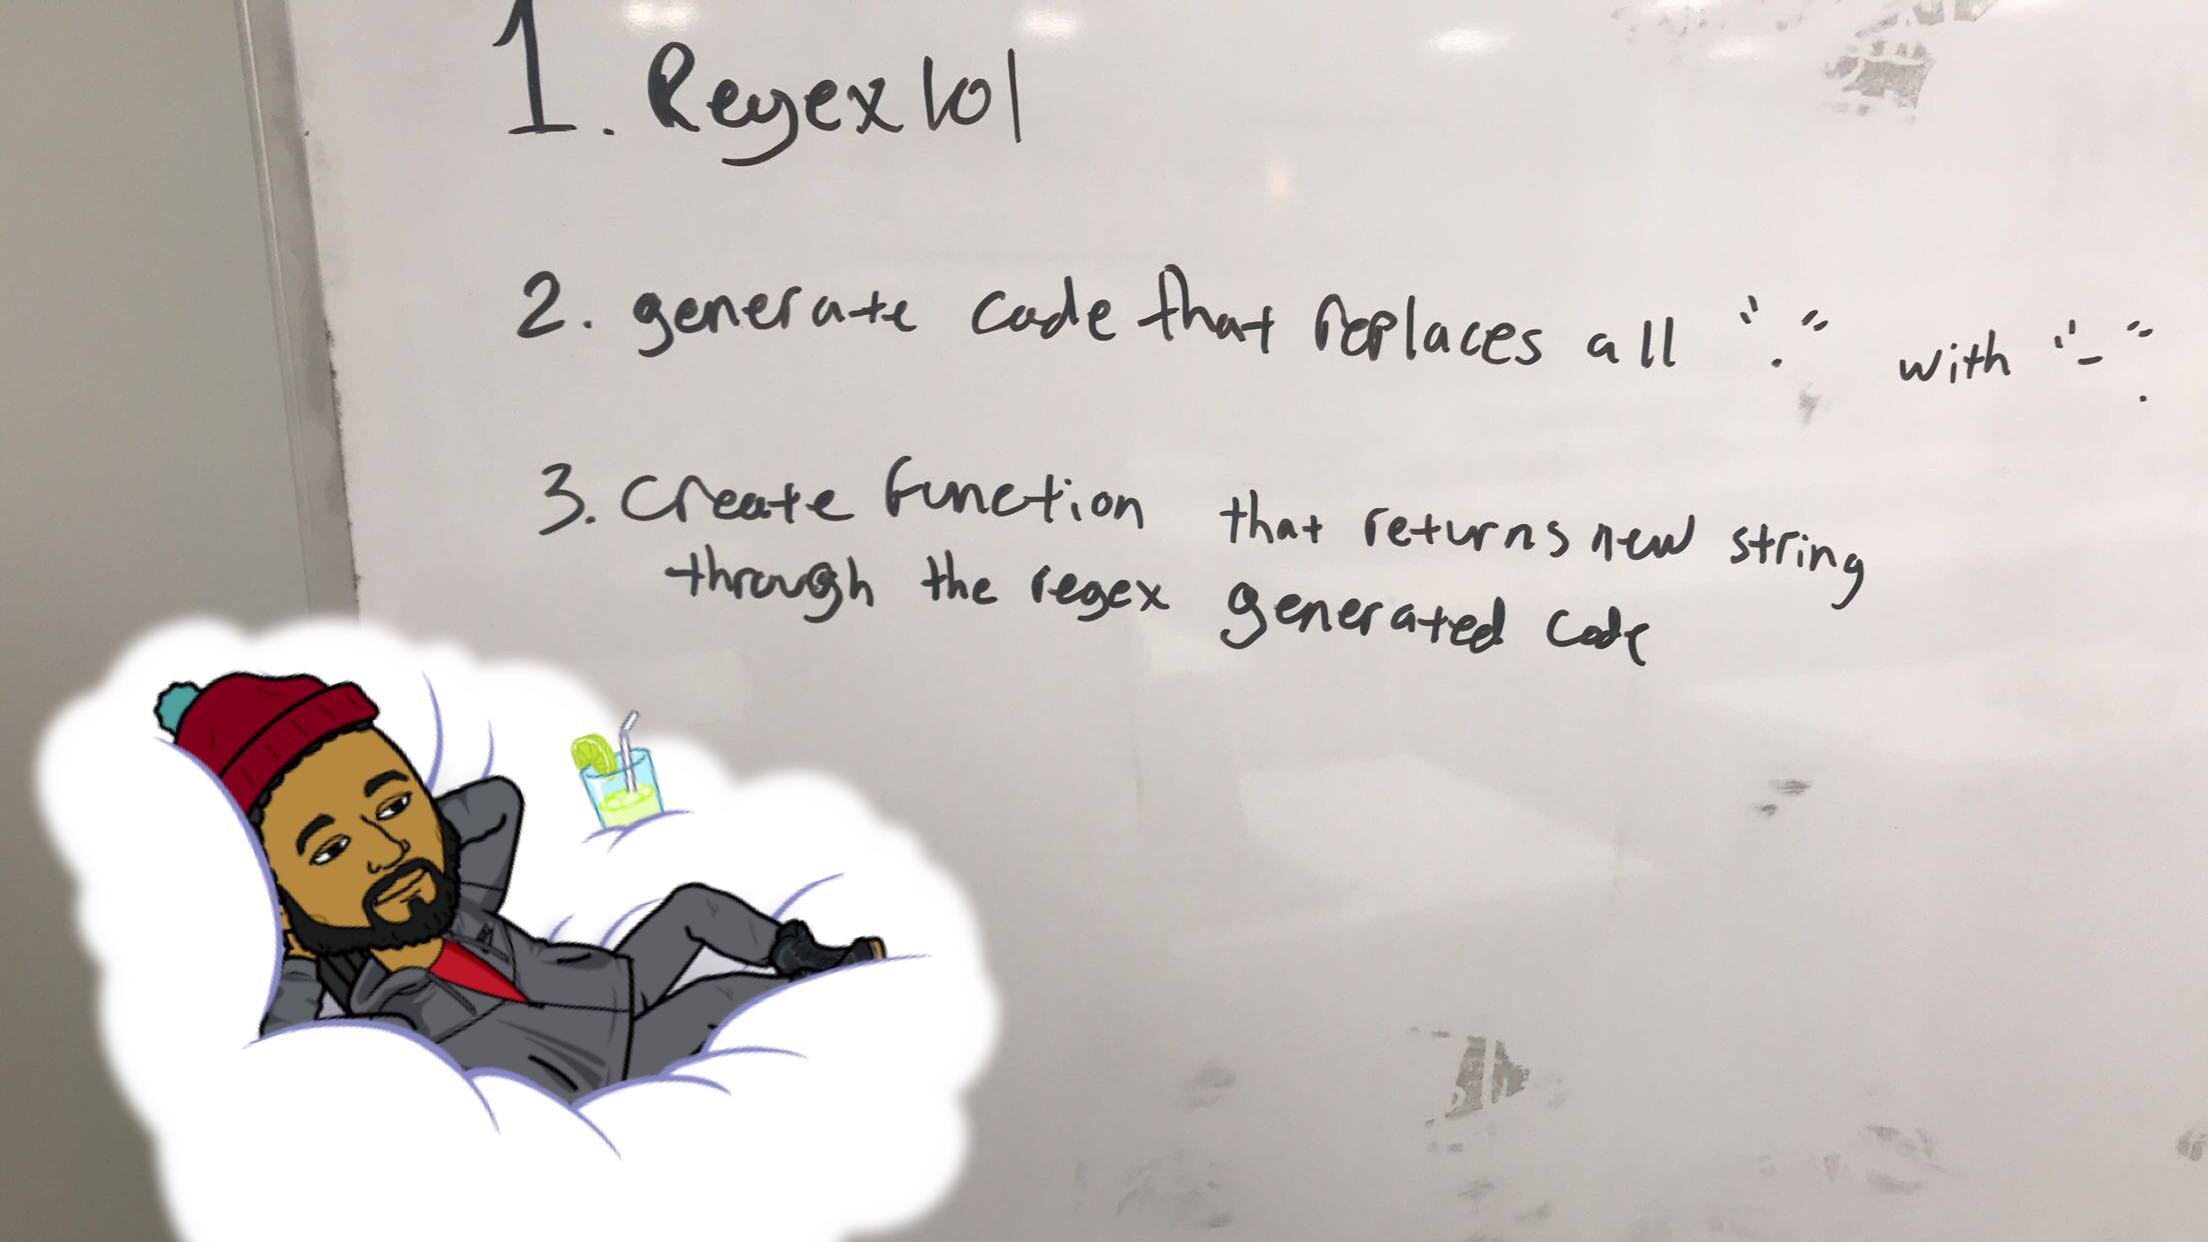 1. Regex lol
2. generate code that replaces all "." with "-".
3. Create function that returns new string
through the regex generated code